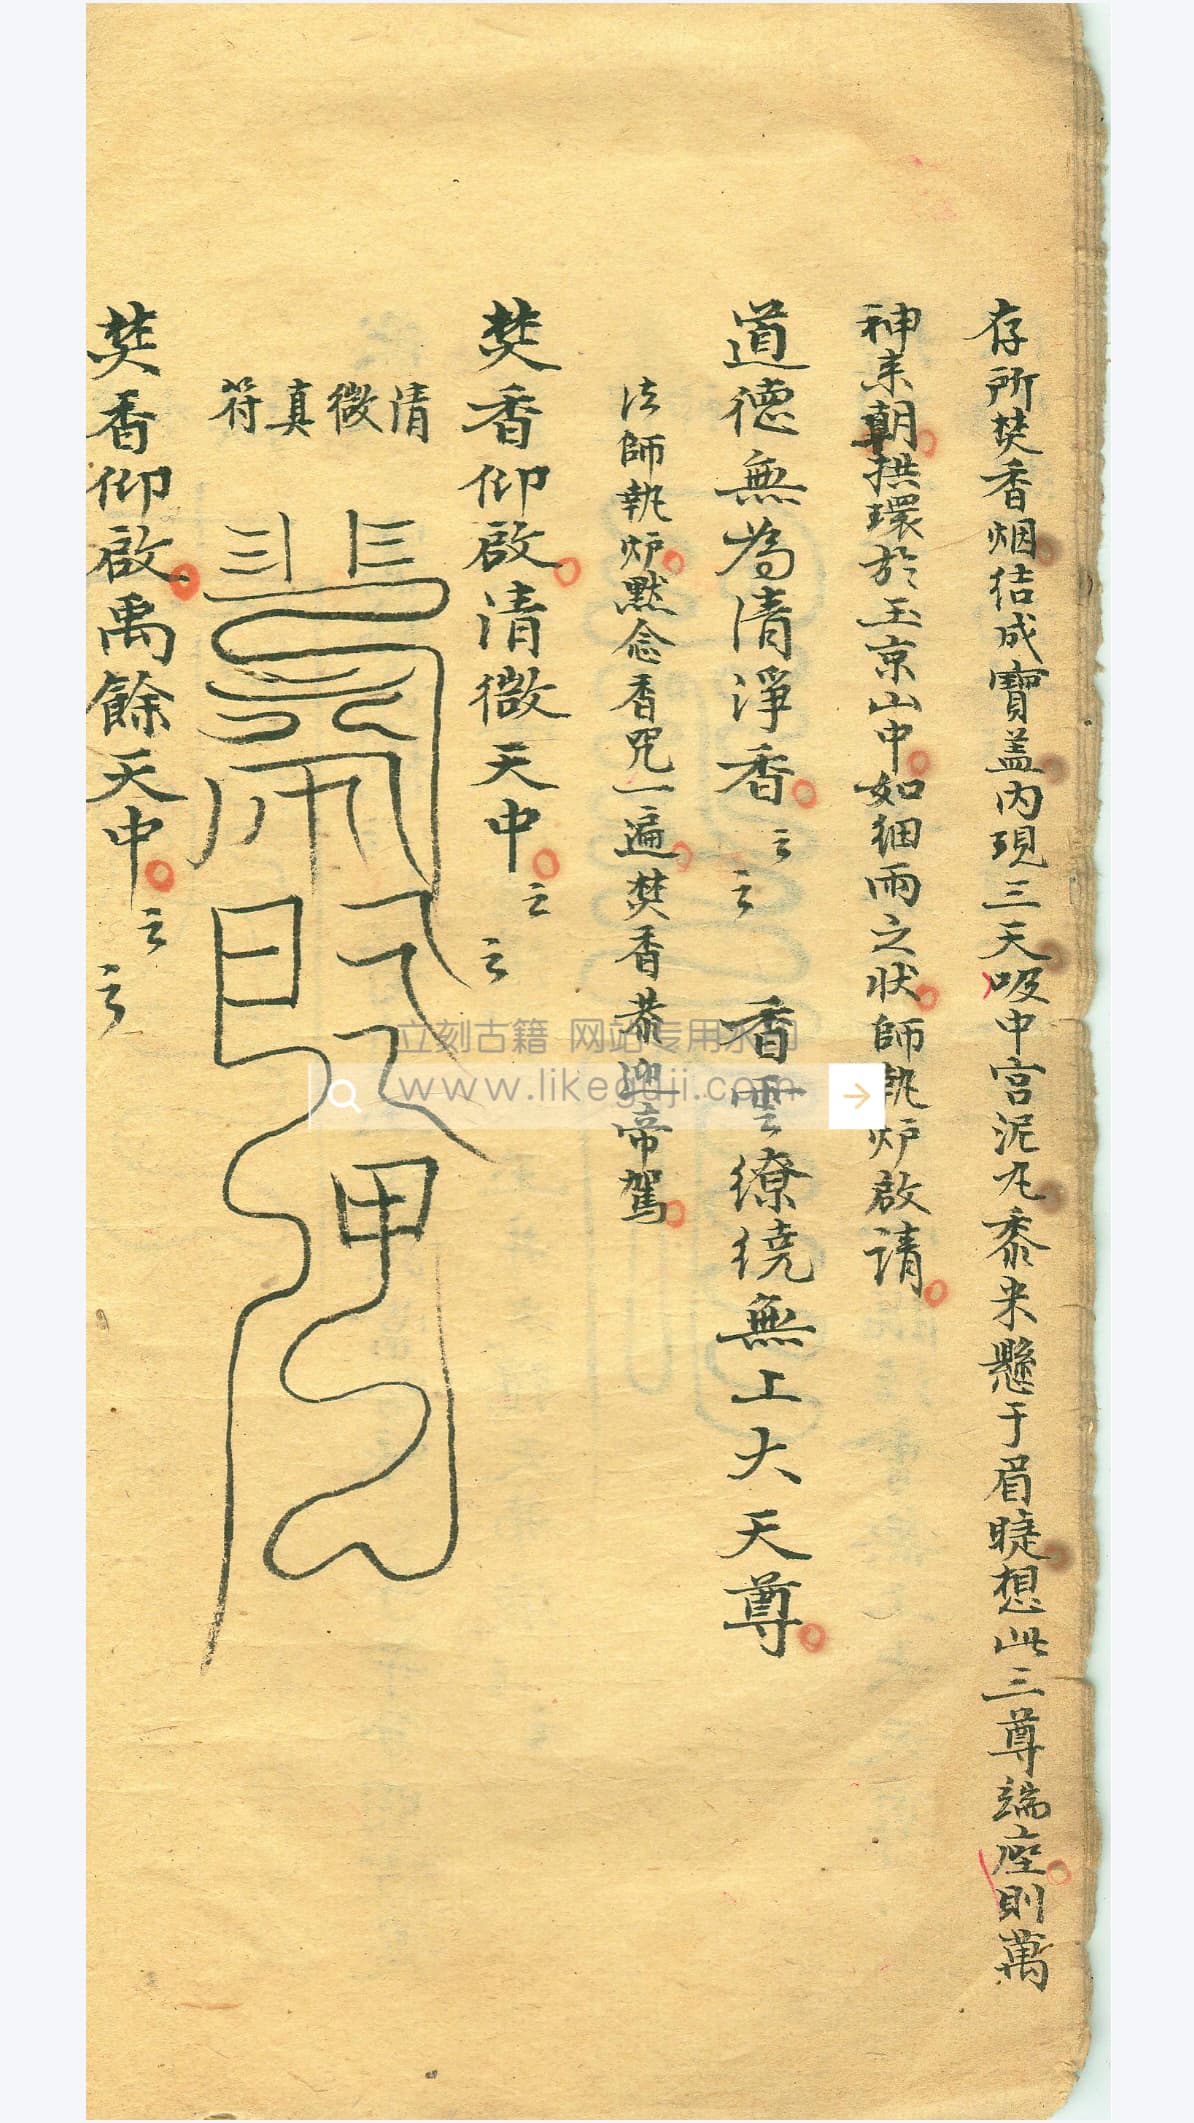 存所焚香烟结成寶盖内現三天吸中宫泥九黍米懸于眉睫想此三尊端座則萬
神来朝拱環於玉京山中如细雨之状師執炉啟請
道德無為清淨香 云云 香雲繚繞無上大天尊
法師執炉默念香咒一遍焚香恭迎帝駕
焚香仰啟清微天中 云云
清微真符
焚香仰啟禹餘天中 云云
立刻古籍 网站专用水印
www.likeguji.com